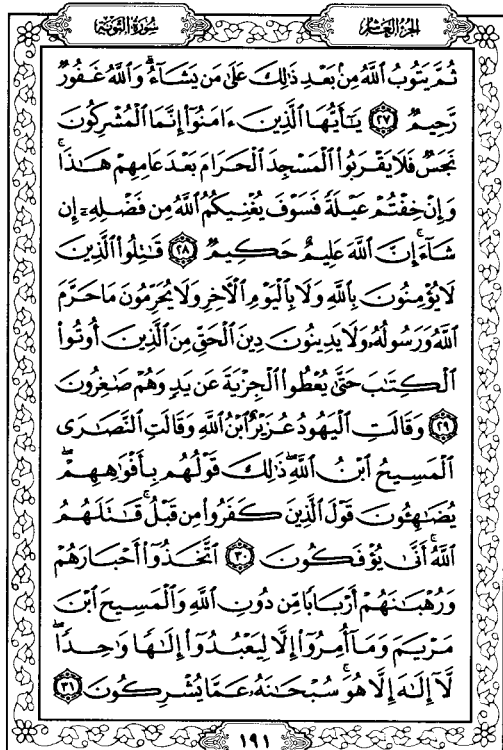 سُورَةُ التَّوْبَةِ
الجُزْءُ العَاشِرُ
ثُمَّ يَتُوبُ ٱللَّهُ مِنۢ بَعْدِ ذَٰلِكَ عَلَىٰ مَن يَشَآءُ ۗ وَٱللَّهُ غَفُورٌ
رَّحِيمٌ ٢٧ يَـٰٓأَيُّهَا ٱلَّذِينَ ءَامَنُوٓا۟ إِنَّمَا ٱلْمُشْرِكُونَ
نَجَسٌ فَلَا يَقْرَبُوا۟ ٱلْمَسْجِدَ ٱلْحَرَامَ بَعْدَ عَامِهِمْ هَـٰذَا ۚ
وَإِنْ خِفْتُمْ عَيْلَةً فَسَوْفَ يُغْنِيكُمُ ٱللَّهُ مِن فَضْلِهِۦٓ إِن
شَآءَ ۚ إِنَّ ٱللَّهَ عَلِيمٌ حَكِيمٌ ٢٨ قَـٰتِلُوا۟ ٱلَّذِينَ
لَا يُؤْمِنُونَ بِٱللَّهِ وَلَا بِٱلْيَوْمِ ٱلْـَٔاخِرِ وَلَا يُحَرِّمُونَ مَا حَرَّمَ
ٱللَّهُ وَرَسُولُهُۥ وَلَا يَدِينُونَ دِينَ ٱلْحَقِّ مِنَ ٱلَّذِينَ أُوتُوا۟
ٱلْكِتَـٰبَ حَتَّىٰ يُعْطُوا۟ ٱلْجِزْيَةَ عَن يَدٍ وَهُمْ صَـٰغِرُونَ
٢٩ وَقَالَتِ ٱلْيَهُودُ عُزَيْرٌ ٱبْنُ ٱللَّهِ وَقَالَتِ ٱلنَّصَـٰرَى
ٱلْمَسِيحُ ٱبْنُ ٱللَّهِ ۖ ذَٰلِكَ قَوْلُهُم بِأَفْوَٰهِهِمْ ۖ
يُضَـٰهِـُٔونَ قَوْلَ ٱلَّذِينَ كَفَرُوا۟ مِن قَبْلُ ۚ قَـٰتَلَهُمُ
ٱللَّهُ ۚ أَنَّىٰ يُؤْفَكُونَ ٣٠ ٱتَّخَذُوٓا۟ أَحْبَارَهُمْ
وَرُهْبَـٰنَهُمْ أَرْبَابًا مِّن دُونِ ٱللَّهِ وَٱلْمَسِيحَ ٱبْنَ
مَرْيَمَ وَمَآ أُمِرُوٓا۟ إِلَّا لِيَعْبُدُوٓا۟ إِلَـٰهًا وَٰحِدًا ۖ
لَّآ إِلَـٰهَ إِلَّا هُوَ ۚ سُبْحَـٰنَهُۥ عَمَّا يُشْرِكُونَ ٣١
١٩١